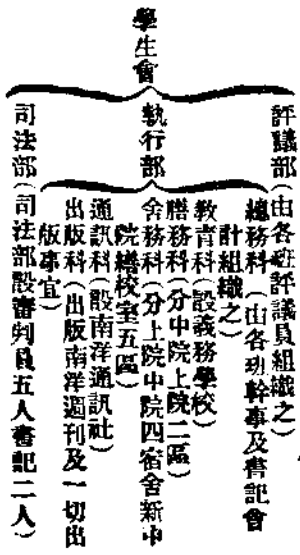 學生會
評議部(由各班評議員組織之)
執行部
總務科(由各班幹事及書記會
計組織之)
教育科(設義務學校)
膳務科(分中院上院二區)
舍務科(分上院中院四宿舍新中
院繕校室五區)
通訊科(設南洋通訊社)
出版科(出版南洋週刊及一切出
版事宜)
司法部(司法部設審判員五人書記二人)